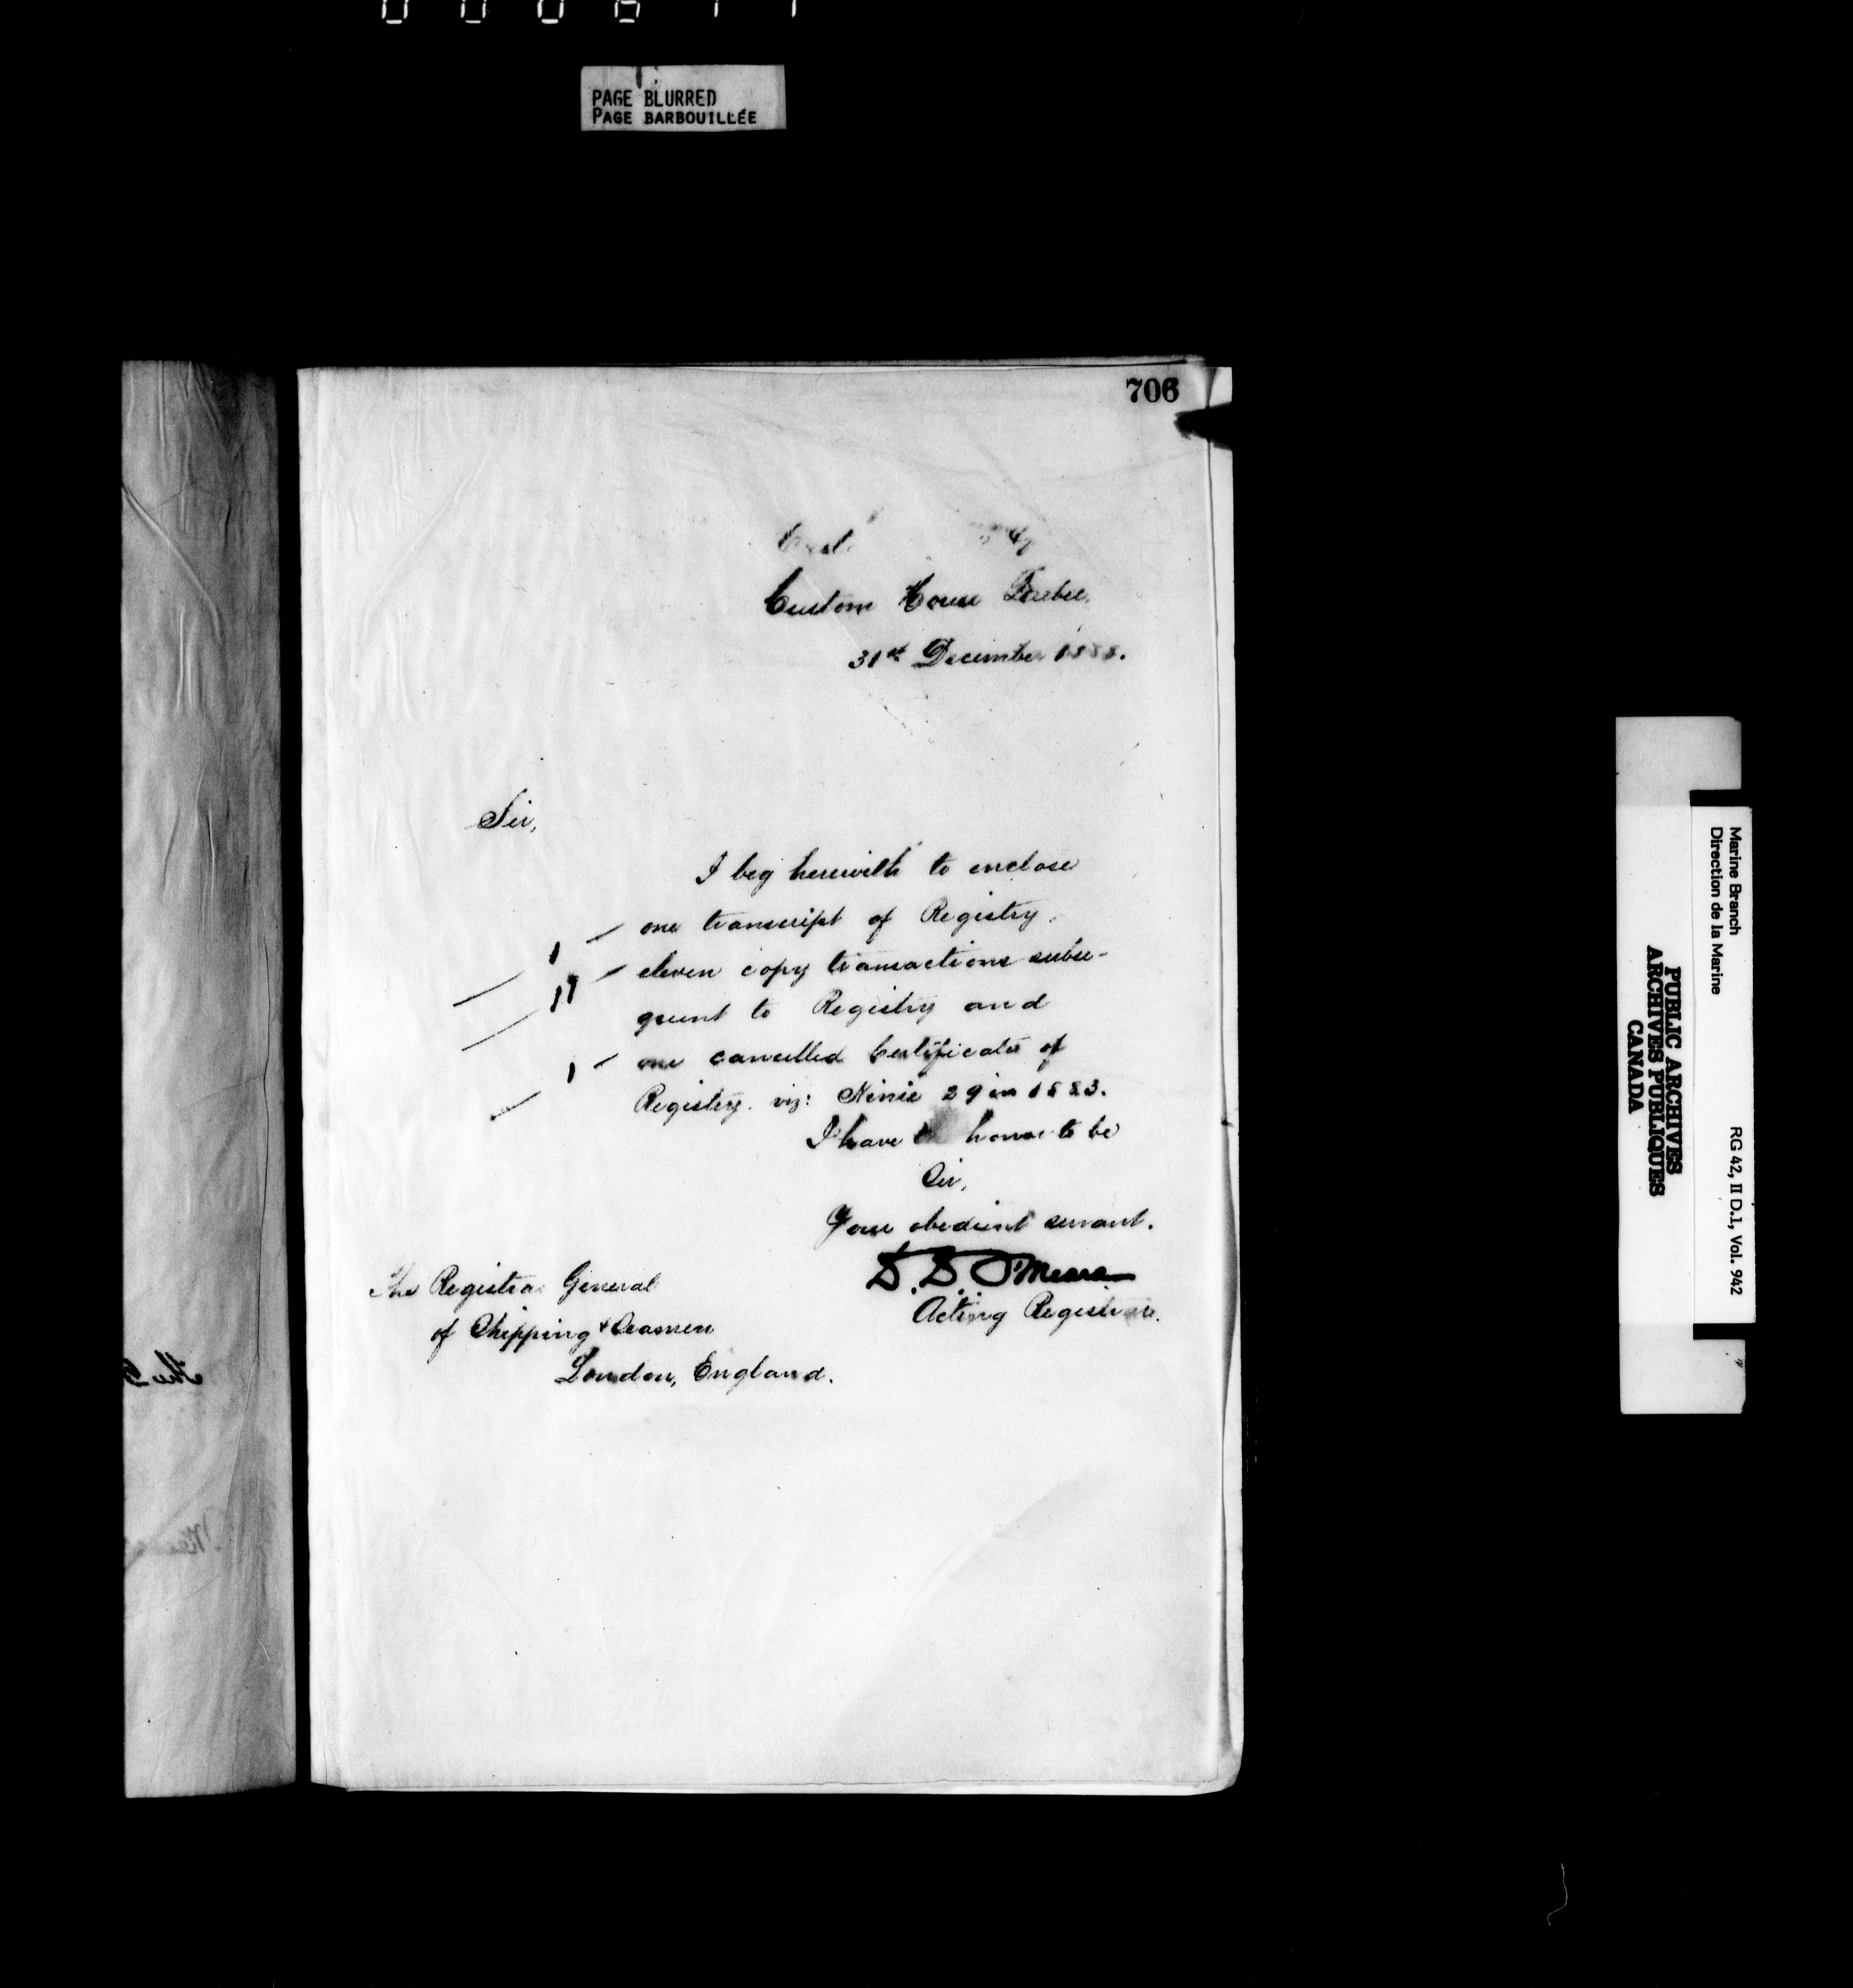 PAGE BLURRED
PAGE BARBOUILLÉE
706
Custom House Quebec,
31st December 1888.
Sir,
I beg herewith to enclose
1 – one transcript of Registry,
11 – eleven copy transactions subse-
quent to Registry and
1 – one cancelled Certificate of
Registry. viz: Ninie 29 in 1883.
I have honor to be
Sir,
Your obedient servant.
D. D. O'Meara
Acting Registrar.
The Registrar General
of Shipping & Seamen
London, England.
Marine Branch
Direction de la Marine
RG 42, II D.1, Vol. 942
PUBLIC ARCHIVES
ARCHIVES PUBLIQUES
CANADA